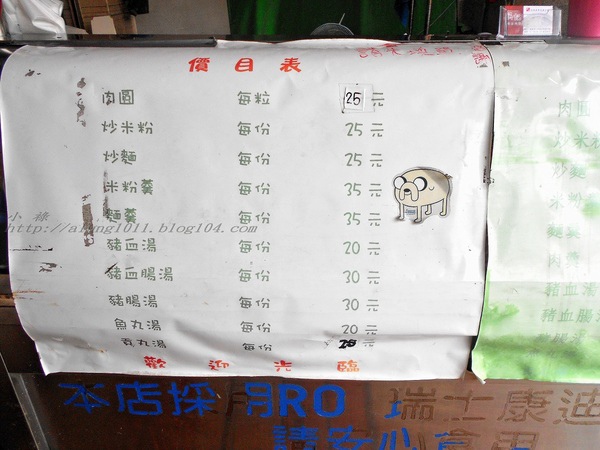 價目表
肉圓 每粒 25 元
炒米粉 每份 25 元
炒麵 每份 25 元
米粉羹 每份 35 元
麵羹 每份 35 元
豬血湯 每份 20 元
豬血腸湯 每份 30 元
豬腸湯 每份 30 元
魚丸湯 每份 20 元
貢丸湯 每份 25 元
歡迎光臨
小綠
http://aling1011.blog104.com
肉圓
炒米粉
炒麵
米粉羹
麵羹
肉羹
豬血湯
豬血腸湯
腸湯
本店採用RO 瑞士康迪
請安心食用